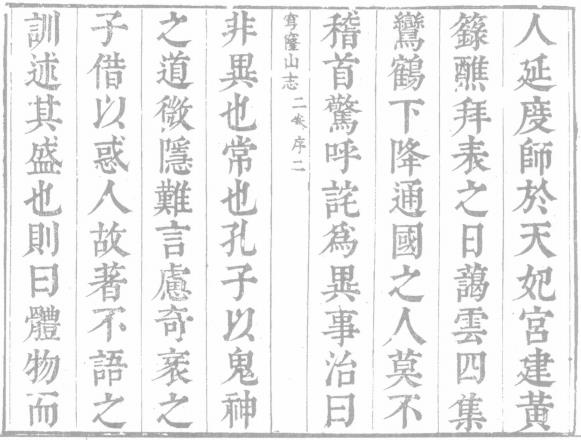 人延度師於天妃宮建黃
籙醮拜表之日藹雲四集
鸞鶴下降通國之人莫不
稽首驚呼詫爲異事治曰
穹窿山志 二奏序 二
非異也常也孔子以鬼神
之道微隱難言慮奇衺之
子借以惑人故著不語之
訓述其盛也則曰體物而